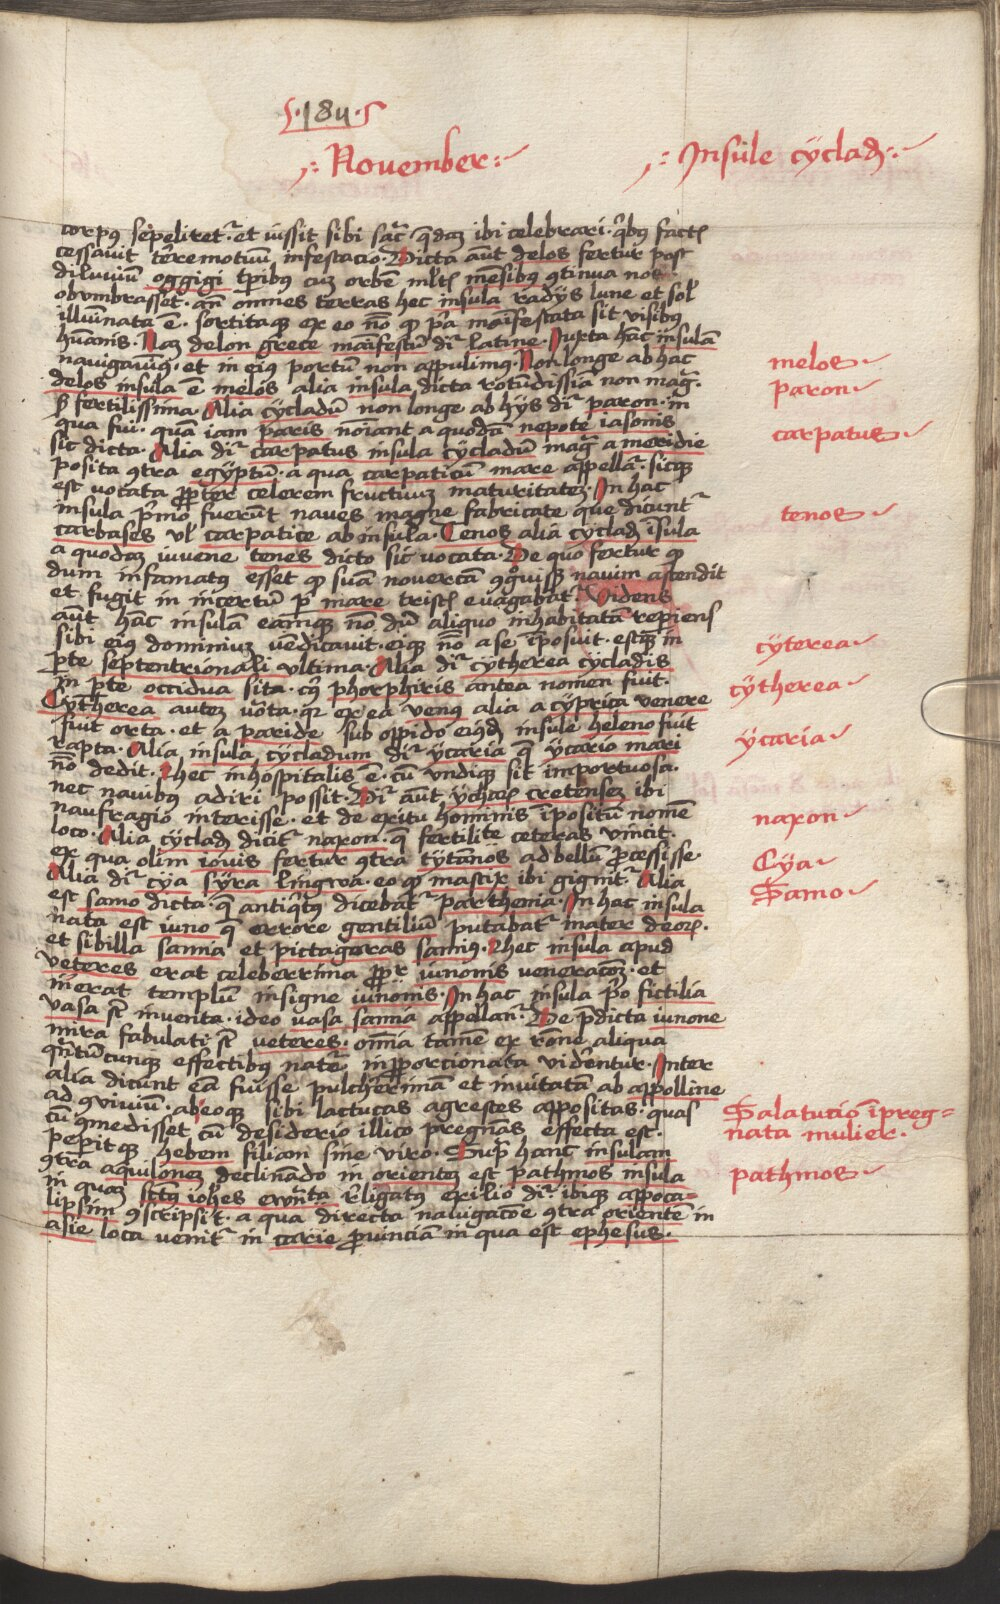 ·184·
November
Insule cÿcladꝫ
corpꝰ sepeliretᷣ et iussit sibi sacᷓ q̃daꝫ ibi celebrari · q̃bꝰ factꝭ
cessavit terremotuũ infestacio · Dicta aũt delos fertur post
diluviũ oggigi tꝑibus cuꝫ orbẽ ml̃tꝭ mẽsibꝰ ꝯtinua nox
obvmbrasset · añ omnes terras hec insula radÿs lune et sol̕
illuĩnata ẽ · sortitaqꝫ ex eo nõ qꝫ pᷓa mãifestata sit visibꝰ
hũanis · Naꝫ delon grece mãifestũ dr̃ latine · Iuxta hãc insulã
navigavimꝰ · et in eiꝰ portũ non appulimꝰ · Non longe ab hac
delos insula ẽ melos alia insula dicta rotũdissĩa non magᷓ ·
ꝫ fertilissima · Alia cÿcladũ non longe ab hÿs dr̃ paron · in
qua fui · quã iam paris noĩant a quodã nepote iasonis
sic dicta · Alia dr̃ carpatus insula cÿcladũ magᷓ a meridie
posita ꝯtra egÿptũ · a qua carpaticũ mare appellaᷣ · sicqꝫ
est vocata ꝓpter celerem fructuuꝫ maturitateꝫ · In hac
insula pĩmo fuerũt naves magne fabricate que dicuntᷣ
carbases vl̕ carpatice ab insula · Tenos alia cÿcladꝫ ĩsula
a quodaꝫ iuvene tenes dicto sic vocata · De quo fertur qꝫ
dum infamatꝰ esset qꝫ suã novercã ꝯgᷓuisset navim ascendit
et fugit in incertũ ꝑ mare tristꝭ evagabatᷣ · Videns
aũt hac insulam eamqꝫ nõ dũ aliquo inhabitatã reperiens
sibi eiꝰ dominiuꝫ vẽdicavit · eiqꝫ nõ a se ĩposuit · estqꝫ in
ꝑte septentrionali vltima · Alia dr̃ cÿtherea cÿcladis
in ꝑte occidua sita · cꝰ phorphiris antea nomen fuit ·
Cÿtherea auteꝫ võta · qꝛ ex ea venꝰ alia a cÿprica venere
fuit orta · et a paride sub opido eiꝰdꝫ insule heleno fuit
rapta · Alia insula cÿcladum dr̃ ÿcaria q̃ ÿcario mari
nõ dedit · Hec inhospitalis ẽ · cũ vndiqꝫ sit importuosa ·
nec navibꝰ adiri possit · Dr̃ aũt ÿcharꝭ cretenseꝫ ibi
naufragio interisse · et de exitu hominis ĩpositũ nomẽ
loco · Alia cÿcladꝫ dicitᷣ naxon · q̃ fertilite ceteras vincit ·
ex qua olim iovis fertur ꝯtra tÿtanos ad bellũ ꝓcessisse ·
Alia dr̃ cÿa sÿra lingwa · eo qꝫ mastix ibi gignitᷣ · Alia
est samo dicta · q̃ antiq̃tꝰ dicebatᷣ parthenia · In hac insula
nata est iuno q̃ errore gentiliũ putabatᷣ mater deoꝝ ·
et sibilla samia et pictagoras samiꝰ · Hec insula apud
veteres erat celeberrima ꝓpᷣ iunonis veneracõeꝫ · et
inerat templũ insigne iunonis · In hac insula pᷓo fictilia
vasa sᷓt inventa · ideo vasa samia appellanᷣ · De p̃dicta iunone
mira fabulati sᷓt veteres · om̃ia tamẽ ex rõne aliqua
q̃ntũcunqꝫ effectibꝰ natᷓe inꝓporcionata viderentur · Inter
alia dicunt eã fuisse pulcherrimã et invitatã ab appolline
ad ꝯviviũ · abeoqꝫ sibi lactucas agrestes appositas · quas
cũ ꝯmedisset cũ desiderio illico pregnãs effecta est ·
peꝑitqꝫ hebem filiam sine viro · Supᷓ hanc insulam
ꝯtra aquiloneꝫ declinãdo in orienteꝫ est pathmos insula
in quaꝫ sctꝰ iohẽs ewñta religatꝰ exilio dr̃ · ibiqꝫ appoca=
lipsim ꝯscripsit · a qua directa navigacõe ꝯtra orientẽ in
asie loca venitᷣ in carie ꝓvinciã in qua est ephesus ·
melos
paron
carpatus
tenos
cÿterea
cÿtherea
ÿcaria
naxon
Cÿa
Samo
Salatucio ĩpreg=
nata mulier ·
pathmos